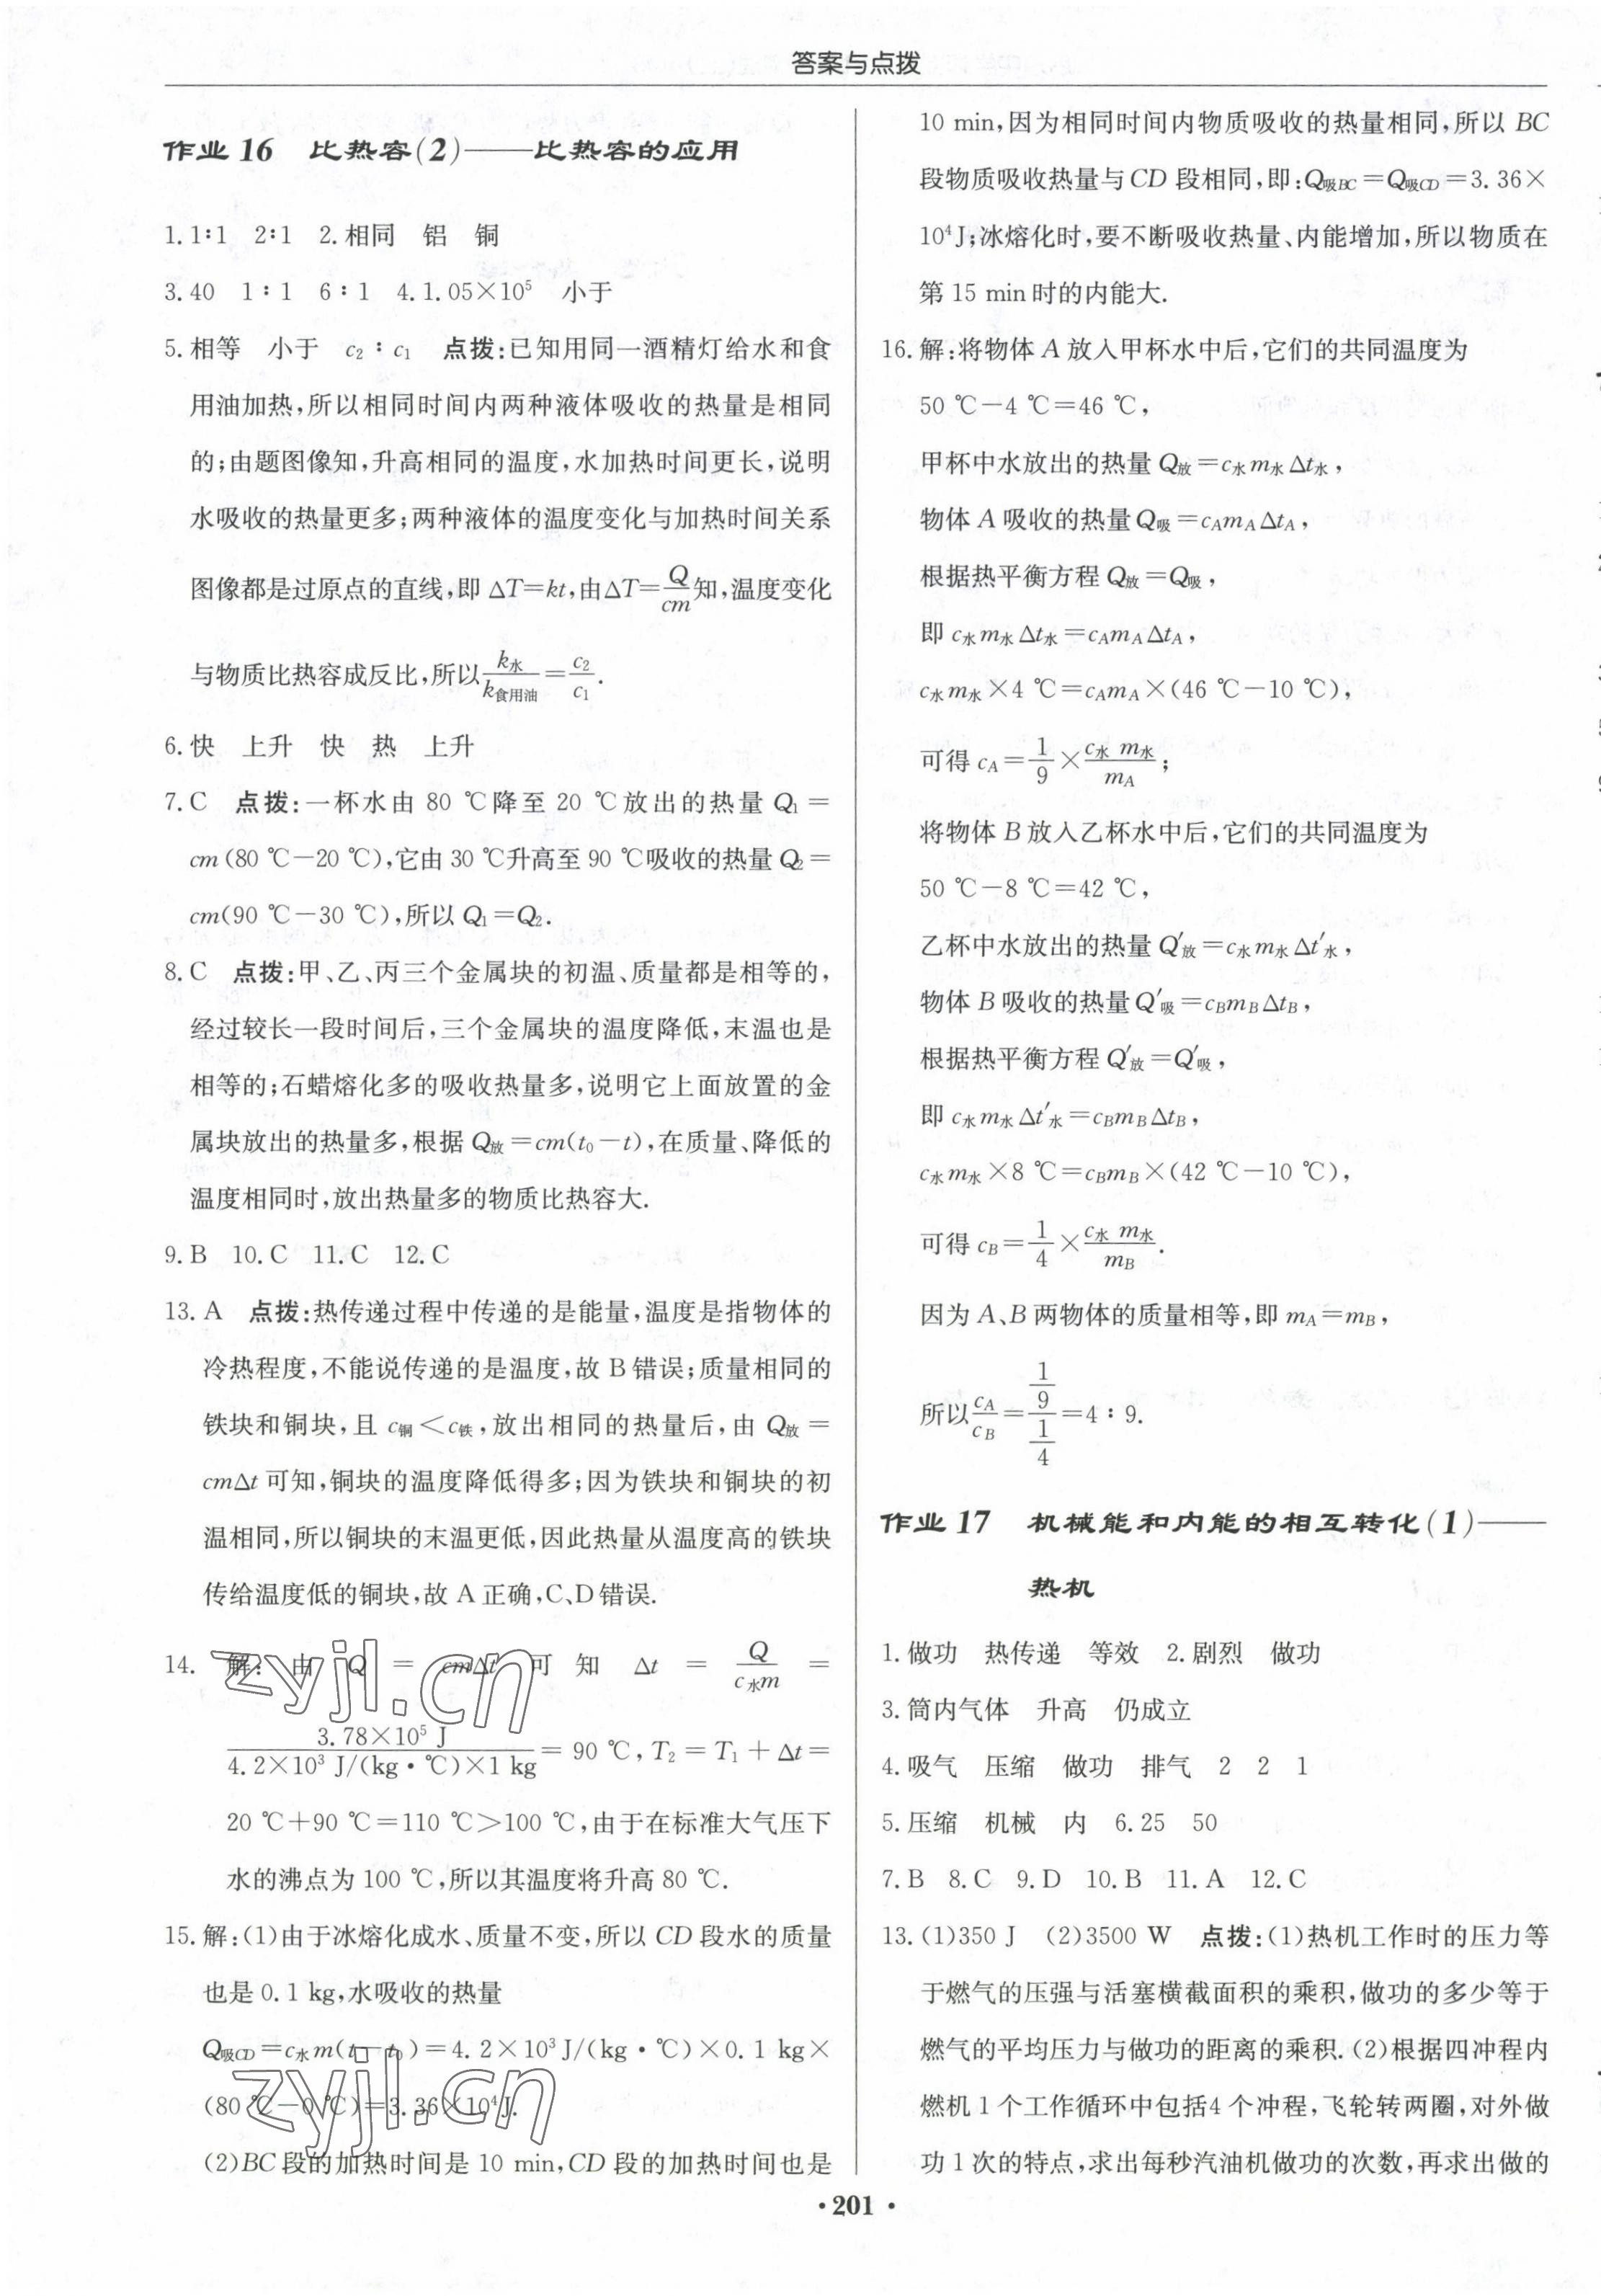 答案与点拨
作业 16 比热容(2)——比热容的应用
1.1∶1 2∶1 2.相同 铝 铜
3.40 1∶1 6∶1 4.1.05×10⁵ 小于
5.相等 小于 c₂∶c₁ 点拨:已知用同一酒精灯给水和食
用油加热,所以相同时间内两种液体吸收的热量是相同
的;由题图像知,升高相同的温度,水加热时间更长,说明
水吸收的热量更多;两种液体的温度变化与加热时间关系
图像都是过原点的直线,即 ΔT=kt,由ΔT=Q/cm知,温度变化
与物质比热容成反比,所以k水/k食用油=c₂/c₁.
6.快 上升 快 热 上升
7.C 点拨:一杯水由 80 ℃降至 20 ℃放出的热量 Q₁=
cm(80 ℃-20 ℃),它由 30 ℃升高至 90 ℃吸收的热量 Q₂=
cm(90 ℃-30 ℃),所以 Q₁=Q₂.
8.C 点拨:甲、乙、丙三个金属块的初温、质量都是相等的,
经过较长一段时间后,三个金属块的温度降低,末温也是
相等的;石蜡熔化多的吸收热量多,说明它上面放置的金
属块放出的热量多,根据 Q放=cm(t₀-t),在质量、降低的
温度相同时,放出热量多的物质比热容大.
9.B 10.C 11.C 12.C
13.A 点拨:热传递过程中传递的是能量,温度是指物体的
冷热程度,不能说传递的是温度,故 B 错误;质量相同的
铁块和铜块,且 c铜<c铁,放出相同的热量后,由 Q放=
cmΔt 可知,铜块的温度降低得多;因为铁块和铜块的初
温相同,所以铜块的末温更低,因此热量从温度高的铁块
传给温度低的铜块,故 A 正确,C、D 错误.
14. 解:由 Q = cmΔt 可知 Δt = Q/c水m =
3.78×10⁵ J/4.2×10³ J/(kg·℃)×1 kg = 90 ℃, T₂ = T₁ + Δt =
20 ℃+90 ℃=110 ℃>100 ℃,由于在标准大气压下
水的沸点为 100 ℃,所以其温度将升高 80 ℃.
15.解:(1)由于冰熔化成水、质量不变,所以 CD 段水的质量
也是 0.1 kg,水吸收的热量
Q吸CD=c水m(t-t₀)=4.2×10³ J/(kg·℃)×0.1 kg×
(80 ℃-0 ℃)=3.36×10⁴J.
(2)BC 段的加热时间是 10 min,CD 段的加热时间也是
10 min,因为相同时间内物质吸收的热量相同,所以 BC
段物质吸收热量与 CD 段相同,即:Q吸BC=Q吸CD=3.36×
10⁴J;冰熔化时,要不断吸收热量、内能增加,所以物质在
第 15 min 时的内能大.
16.解:将物体 A 放入甲杯水中后,它们的共同温度为
50 ℃-4 ℃=46 ℃,
甲杯中水放出的热量 Q放=c水m水Δt水,
物体 A 吸收的热量 Q吸=cAmAΔtA,
根据热平衡方程 Q放=Q吸,
即 c水m水Δt水=cAmAΔtA,
c水m水×4 ℃=cAmA×(46 ℃-10 ℃),
可得 cA=1/9×c水m水/mA;
将物体 B 放入乙杯水中后,它们的共同温度为
50 ℃-8 ℃=42 ℃,
乙杯中水放出的热量 Q′放=c水m水Δt′水,
物体 B 吸收的热量 Q′吸=cBmBΔtB,
根据热平衡方程 Q′放=Q′吸,
即 c水m水Δt′水=cBmBΔtB,
c水m水×8 ℃=cBmB×(42 ℃-10 ℃),
可得 cB=1/4×c水m水/mB.
因为 A、B 两物体的质量相等,即 mA=mB,
所以cA/cB=(1/9)/(1/4)=4∶9.
作业 17 机械能和内能的相互转化(1)——
热机
1.做功 热传递 等效 2.剧烈 做功
3.筒内气体 升高 仍成立
4.吸气 压缩 做功 排气 2 2 1
5.压缩 机械 内 6.25 50
7.B 8.C 9.D 10.B 11.A 12.C
13.(1)350 J (2)3500 W 点拨:(1)热机工作时的压力等
于燃气的压强与活塞横截面积的乘积,做功的多少等于
燃气的平均压力与做功的距离的乘积.(2)根据四冲程内
燃机 1 个工作循环中包括4 个冲程,飞轮转两圈,对外做
功 1 次的特点,求出每秒汽油机做功的次数,再求出做的
· 201 ·
zyjl.cn
zyjl.cn